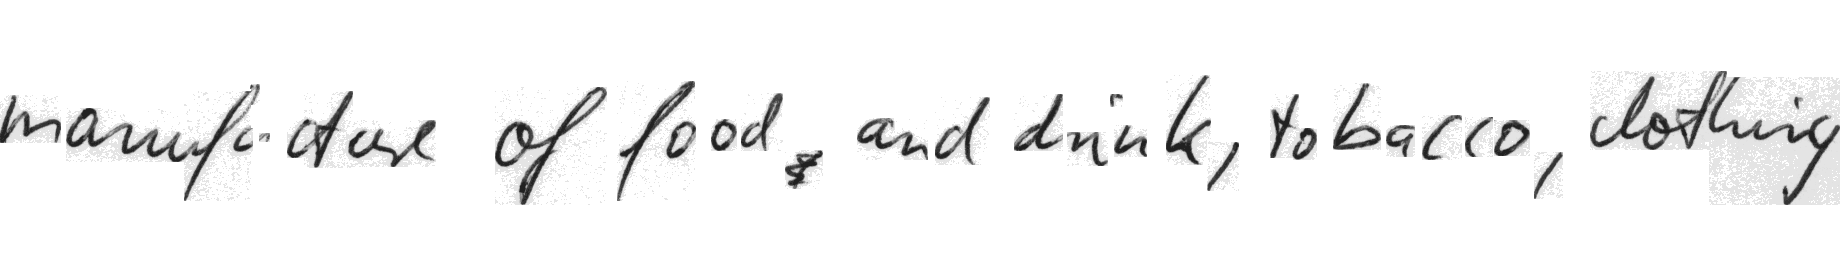 manufacture of food and drink, tobacco, clothing